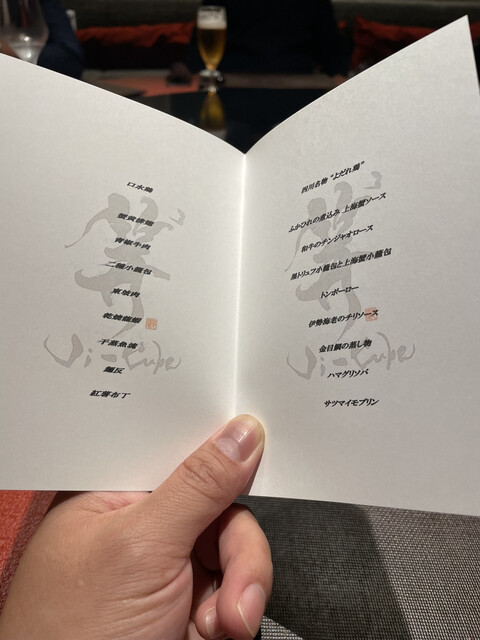 口水鶏
蟹黄排翅
青椒牛肉
二種小籠包
東坡肉
乾焼龍蝦
干蒸魚滷
麺反
紅薯布丁
四川名物 “よだれ鶏”
ふかひれの煮込み 上海蟹ソース
和牛のチンジャオロース
黒トリュフ小籠包と上海蟹小籠包
トンポーロー
伊勢海老のチリソース
金目鯛の蒸し物
ハマグリソバ
サツマイモプリン
Ji-Cube
Ji-Cube